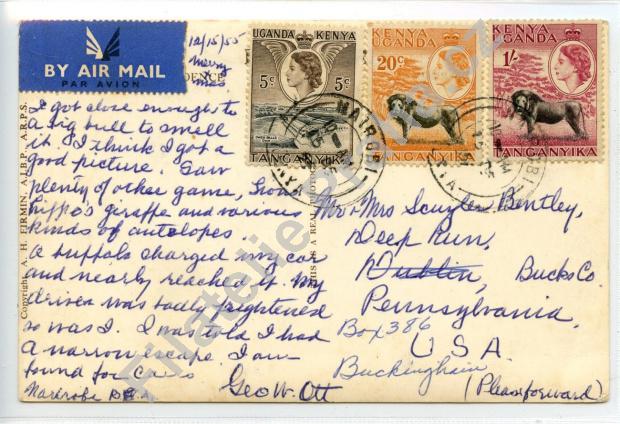 BY AIR MAIL
PAR AVION
12/15/55
Merry
Xmas
UGANDA KENYA
5c 5c
TANGANYIKA
KENYA
UGANDA
20c
TANGANYIKA
KENYA
UGANDA
1/-
TANGANYIKA
NAIROBI
I got close enough to
a big bull to smell
it. I think I got a
good picture. Saw
plenty of other game, Lions
hippo's giraffe and various
kinds of antolopes
A buffalo charged my car
and nearly reached it. My
driver was badly frightened
so was I. I was told I had
a narrow escape. I am
bound for
Geo W. Ott
Copyright A. H. FIRMIN, A.I.B.P., A.R.P.S.
THIS IS A REAL
Mr & Mrs Bentley,
Deep Run,
Dublin, Bucks Co.
Pennsylvania
Box 386
U S A.
Buckingham
(Please forward)
Filatelie